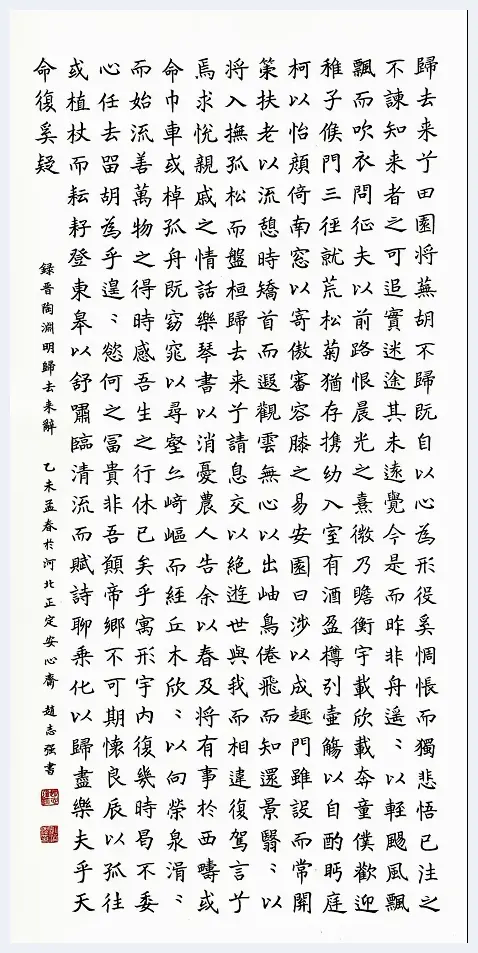 歸去来兮田園將蕪胡不歸既自以心為形役奚惆悵而獨悲悟已往之
不諫知来者之可追實迷途其未遠覺今是而昨非舟遥〻以輕颺風飄
飄而吹衣問征夫以前路恨晨光之熹微乃瞻衡宇載欣載奔童僕歡迎
稚子候門三徑就荒松菊猶存携幼入室有酒盈樽引壺觴以自酌眄庭
柯以怡顏倚南窓以寄傲審容膝之易安園日涉以成趣門雖設而常開
策扶老以流憩時矯首而遐觀雲無心以出岫鳥倦飛而知還景翳〻以
將入撫孤松而盤桓歸去来兮請息交以絶遊世與我而相違復駕言兮
焉求悅親戚之情話樂琴書以消憂農人告余以春及將有事於西疇或
命巾車或棹孤舟既窈窕以尋壑亦崎嶇而經丘木欣〻以向榮泉涓〻
而始流善萬物之得時感吾生之行休已矣乎寓形宇内復幾時曷不委
心任去留胡為乎遑〻慾何之冨貴非吾願帝鄉不可期懷良辰以孤往
或植杖而耘耔登東皋以舒嘯臨清流而賦詩聊乘化以歸盡樂夫乎天
命復奚疑
錄晋陶淵明歸去来辭 乙未孟春於河北正定安心齋 趙志强書